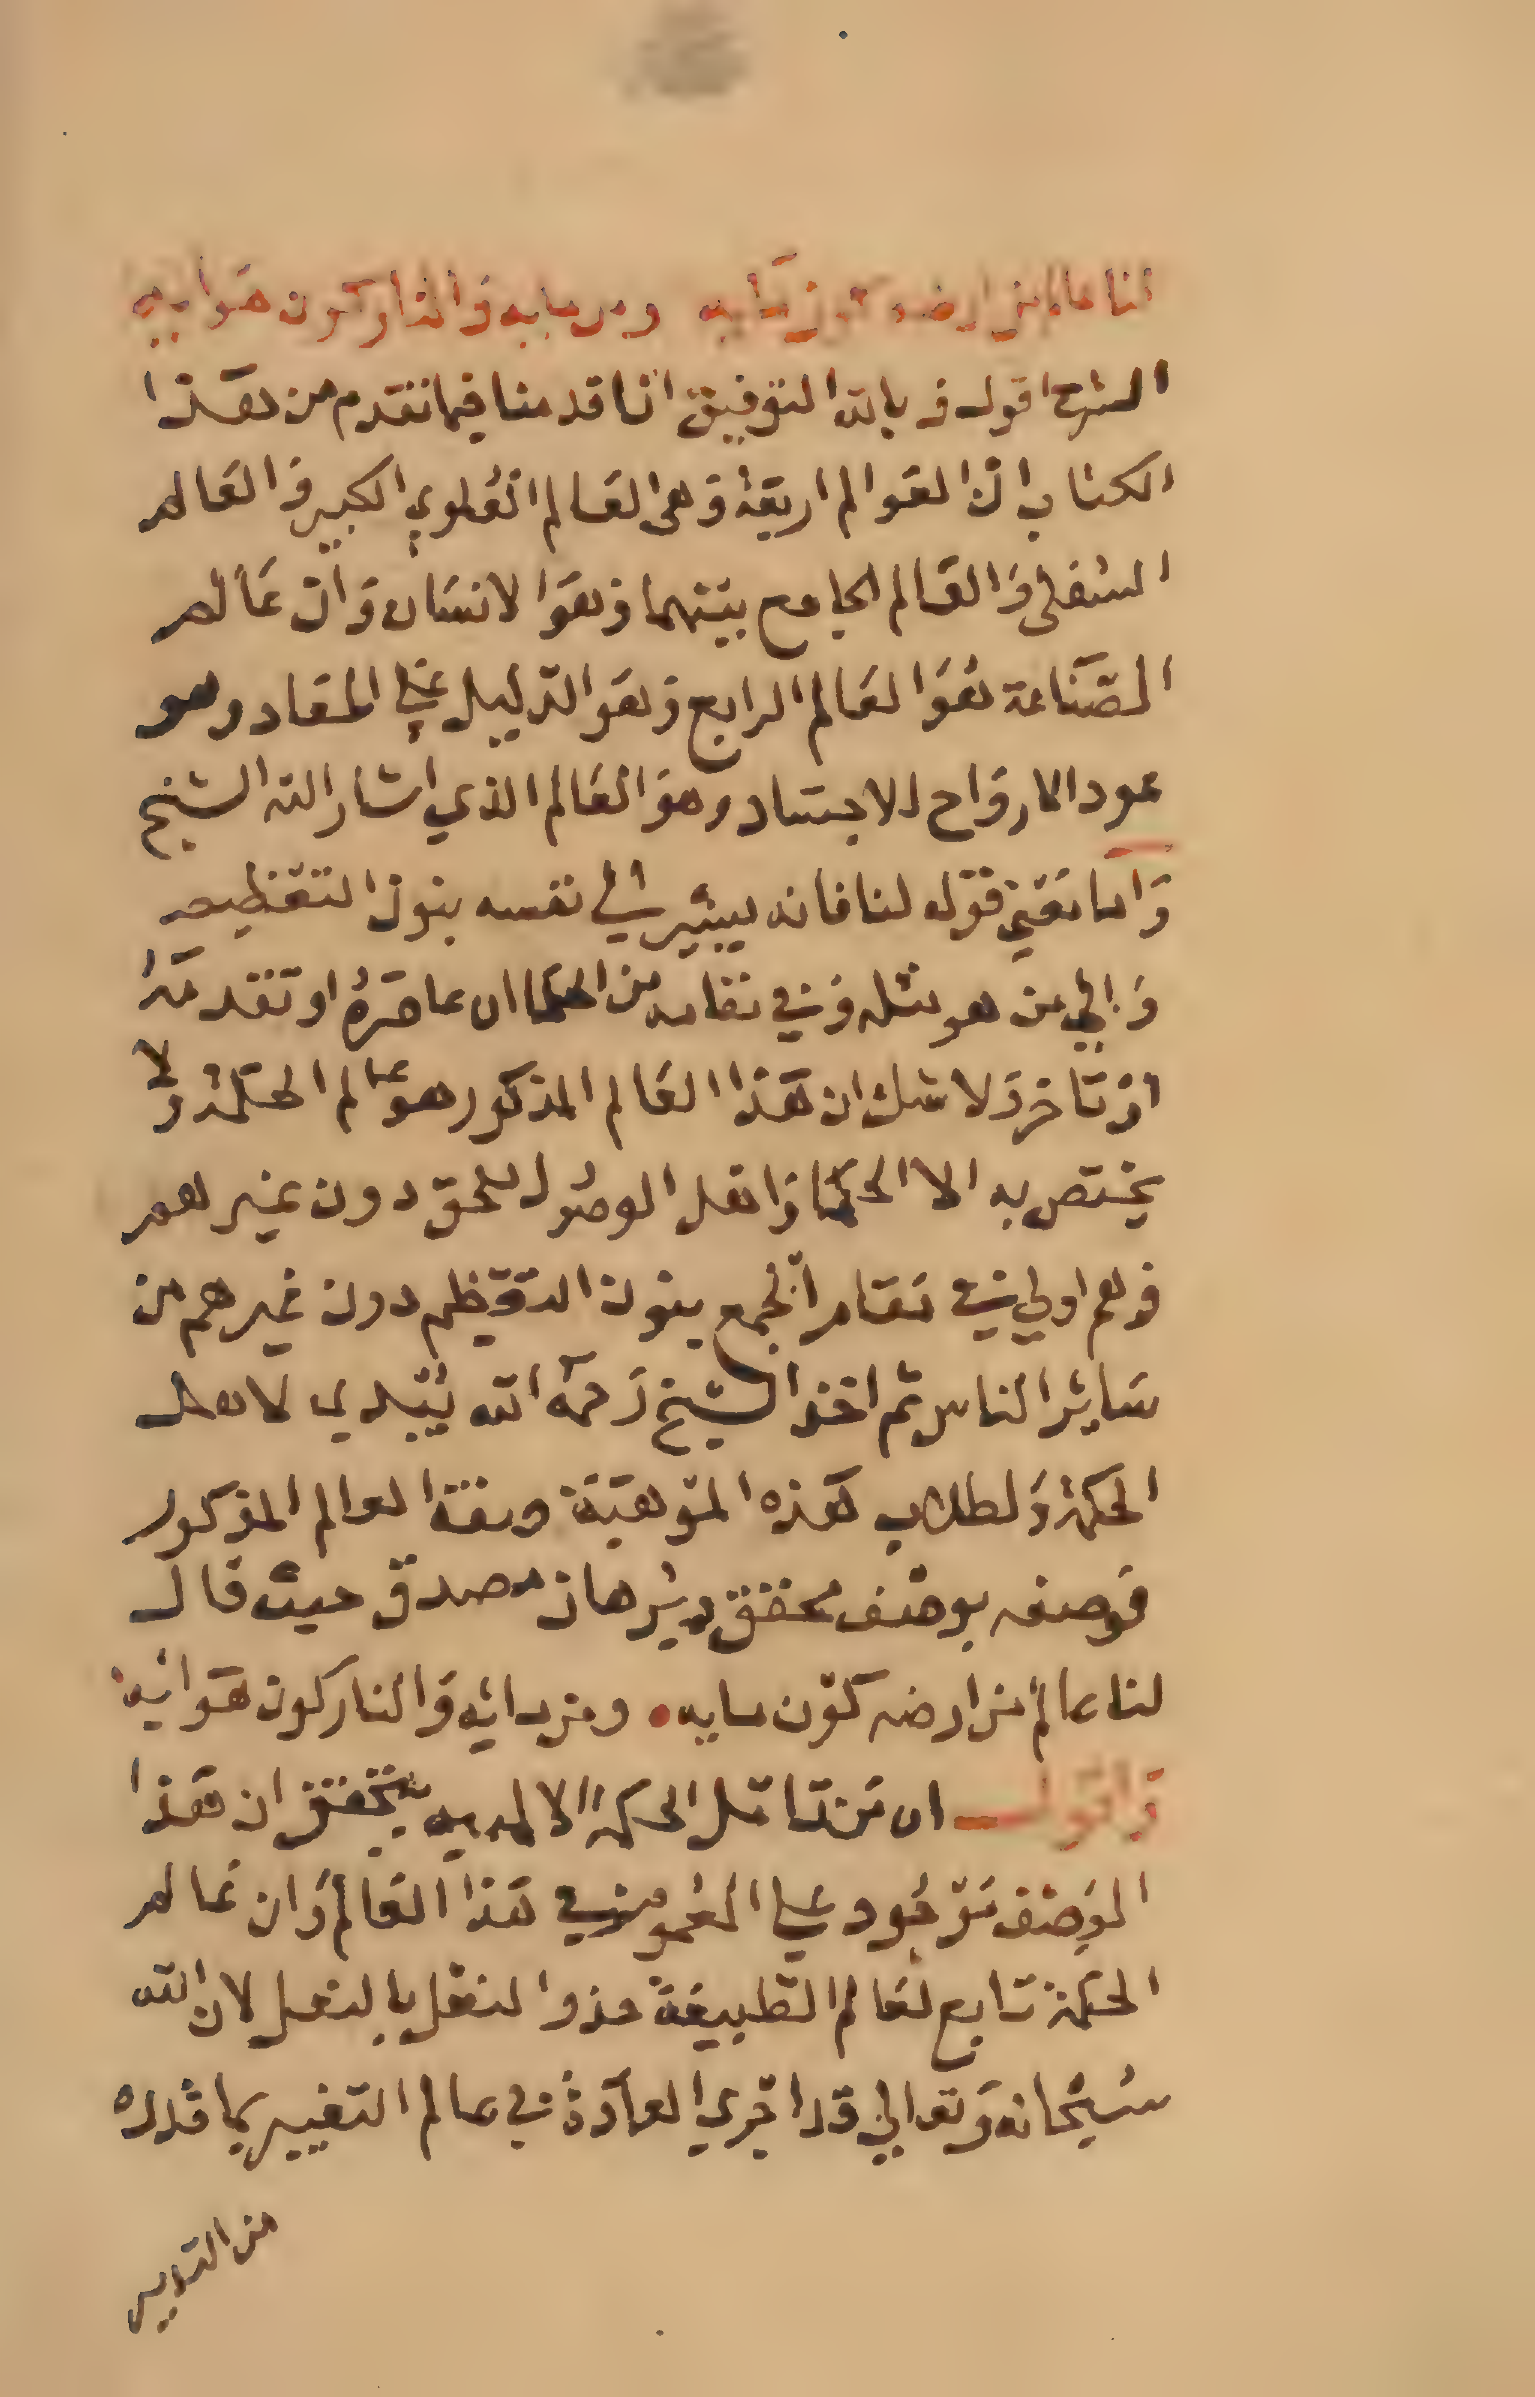 لنا عالم من ارضه كون مايه ومن مايه والنار كون هوايه
الشرح اقول و بالله التوفيق انا قدمنا فيما تقدم من هذا
الكتاب ان العوالم اربعة وهي العالم العلوي الكبير والعالم
السفلي والعالم الجامع بينهما وهو الانسان وان عالم
الصناعة هو العالم الرابع وهو الدليل علي المعاد وهو
عود الارواح للاجساد وهو العالم الذي اشار اليه الشيخ
واما معني قوله لنا فانه يشير الي نفسه بنون التعظيم
والي من هو مثله وفي مقامه من الحكما ان عاصره او تقدمه
او تاخر ولا شك ان هذا العالم المذكور هو عالم الحكمة ولا
يختص به الا الحكما واهل الوصول للحق دون غيرهم
فهم اولي في مقام الجمع بنون التعظيم دون غيرهم من
ساير الناس ثم اخذ الشيخ رحمه الله يبتدي لاهل
الحكمة ولطلاب هذه الموهبة وصفة العالم المذكور
فوصفه بوصف محقق وبرهان مصدق حيث قال
لنا عالم من ارضه كون مايه ومن مائه والنار كون هوائيه
واقول ان من تامل الحكمة الالهيه يتحقق ان هذا
الوصف موجود علي العموم في هذا العالم وان عالم
الحكمة تابع لعالم الطبيعة حذو النعل بالنعل لان الله
سبحانه وتعالي قد اجري العادة في عالم التغيير بما قدره
من التدبير